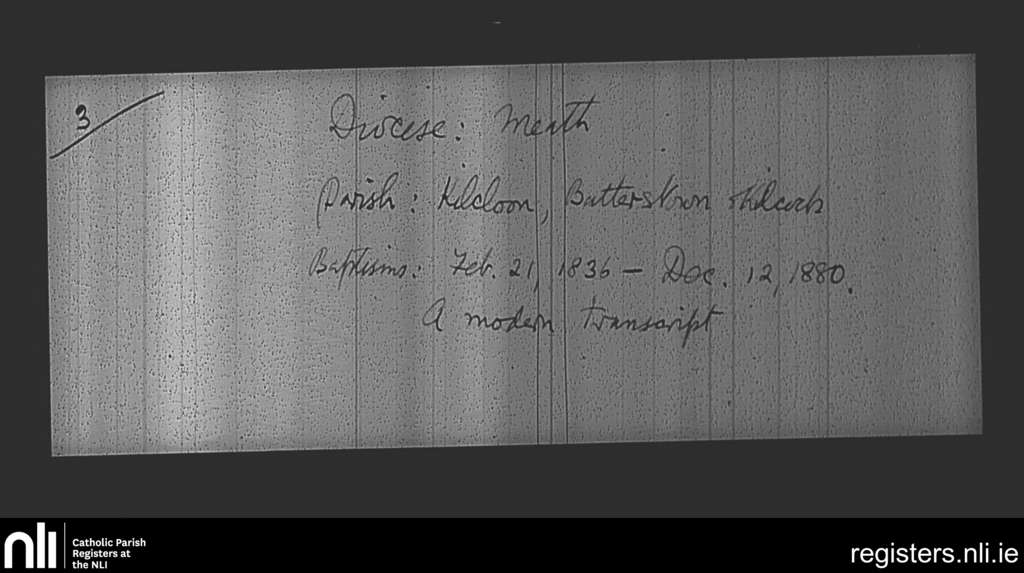 3
Diocese: Meath
Parish: Kilcloon, Batterstown &
Baptisms: Feb. 21, 1836 – Dec. 12, 1880.
A modern transcript
nli
Catholic Parish
Registers at
the NLI
registers.nli.ie